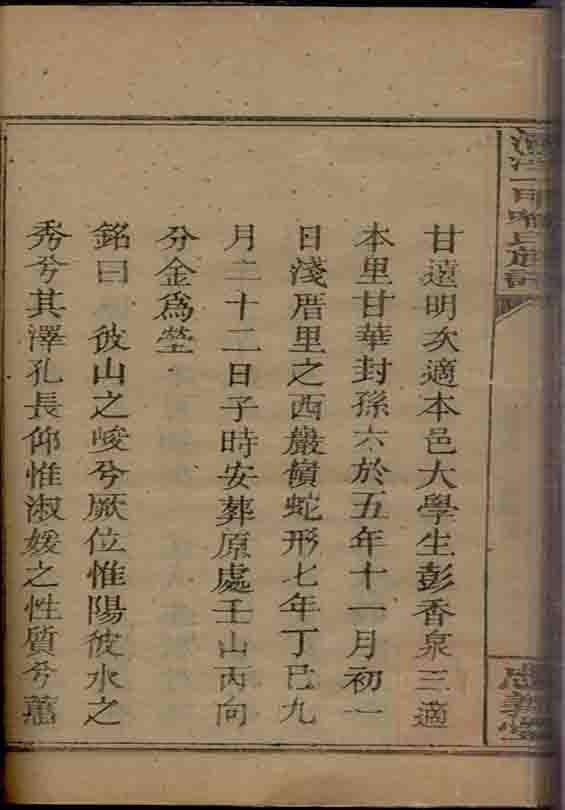 甘遠明次適本邑大學生彭香泉三適
本里甘華封孫六於五年十一月初一
日淺厝里之西巖嶺蛇形七年丁巳九
月二十二日子時安葬原處壬山丙向
分金為塋
銘曰 彼山之峻兮厥位惟陽彼水之
秀兮其澤孔長仰惟淑媛之性質兮蕙